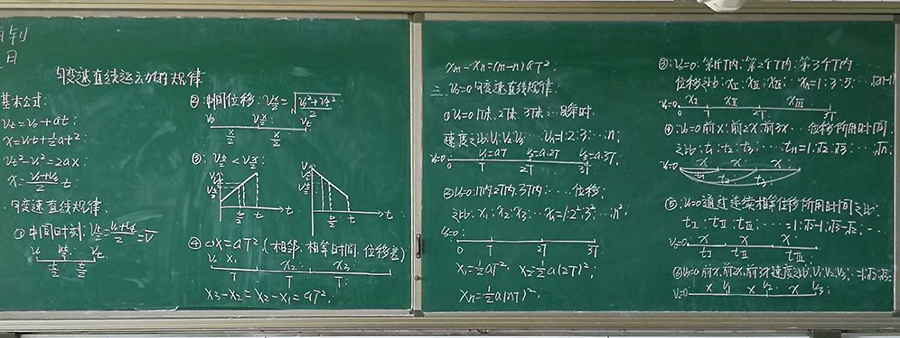 制
月
匀变速直线运动的规律
基本公式:
v_t=v_0+at;
x=v_0t+½at²
v_t²-v_0²=2ax;
x=(v_0+v_t)/2 t;
匀变速直线规律.
①中间时刻: v_{t/2}=(v_0+v_t)/2=v̄
v_0 v_{t/2} v_t
t/2 t/2
②中间位移: v_{x/2}=√((v_0²+v_t²)/2)
v_0 v_{x/2} v_t
x/2 x/2
③: v_{t/2}<v_{x/2}:
t/2 t
t/2 t
④△x=aT²,(相邻.相等时间.位移差)
v_0 x_1 x_2 x_3
T T T
x_3-x_2=x_2-x_1=aT²;
x_m-x_n=(m-n)aT².
三. v_0=0匀变速直线规律:
①v_0=0 1T末.2T末 3T末…
速度之比:v_1:v_2:v_3…v_n=1:2:3:…n;
v_0=0 v_1=aT v_2=a.2T v_3=a.3T
0 T 2T 3T
②v_0=0:1T内2T内.3T内:… 位移:
之比: x_1:x_2:x_3:…x_n=1:2²:3²:…n².
v_0=0:
0 T 2T 3T
x_1=½aT², x_2=½a(2T)²,
x_n=½a(nT)².
③:v_0=0:第1个T内:第2个T内:第3个T内
位移之比:x_Ⅰ:x_Ⅱ:x_Ⅲ:…x_n=1:3:5:…
x_Ⅰ x_Ⅱ x_Ⅲ
0 T 2T 3T
④:v_0=0 前x:前2x:前3x… 位移所用时间
之比: t_1:t_2:t_3:…t_n=1:√2:√3:…√n.
v_0=0 x x x
t_1 t_2 t_3
⑤:v_0=0通过连续相等位移所用时间之比:
t_Ⅰ:t_Ⅱ:t_Ⅲ:…:1:√2-1:√3-√2:…
v_0=0 x x x
t_Ⅰ t_Ⅱ t_Ⅲ
⑥v_0=0前x,前2x,前3x速度之比:v_1:v_2:v_3:…=1:√2:√3:
v_0=0 x v_1 x v_2 x v_3